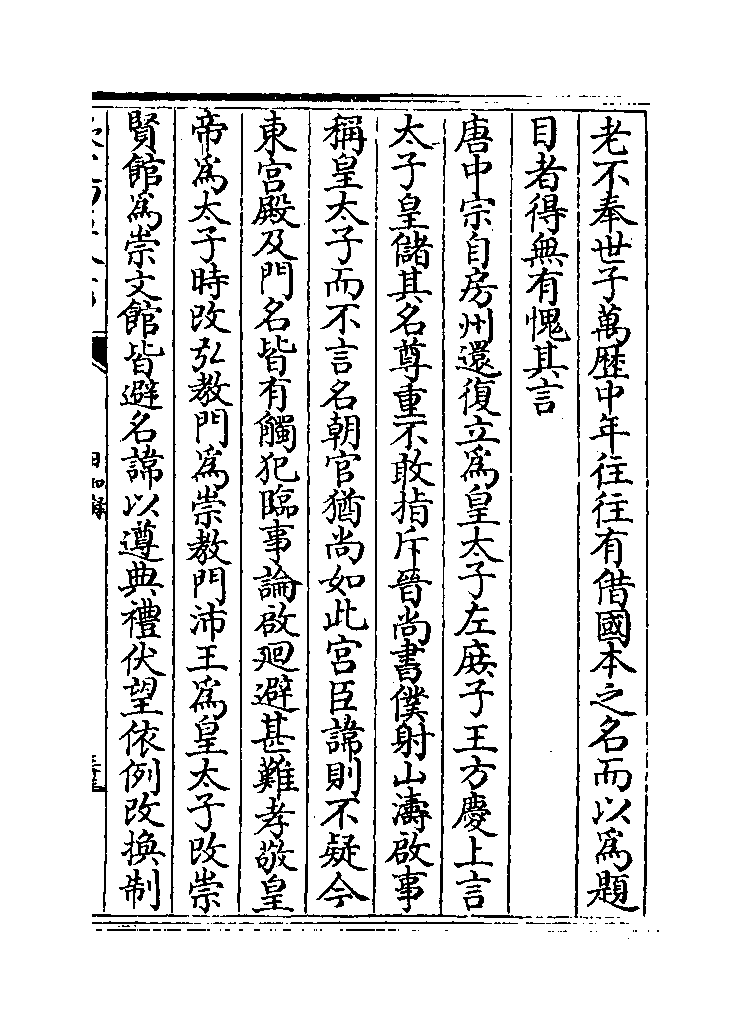 老不奉世子萬歴中年往往有借國本之名而以為題
目者得無有愧其言
唐中宗自房州還復立為皇太子左庶子王方慶上言
太子皇儲其名尊重不敢指斥晉尚書僕射山濤啟事
稱皇太子而不言名朝官猶尚如此宮臣諱則不疑今
東宮殿及門名皆有觸犯臨事論啟廻避甚難孝敬皇
帝為太子時改弘教門為崇教門沛王為皇太子改崇
賢館為崇文館皆避名諱以遵典禮伏望依例改換制
日知録